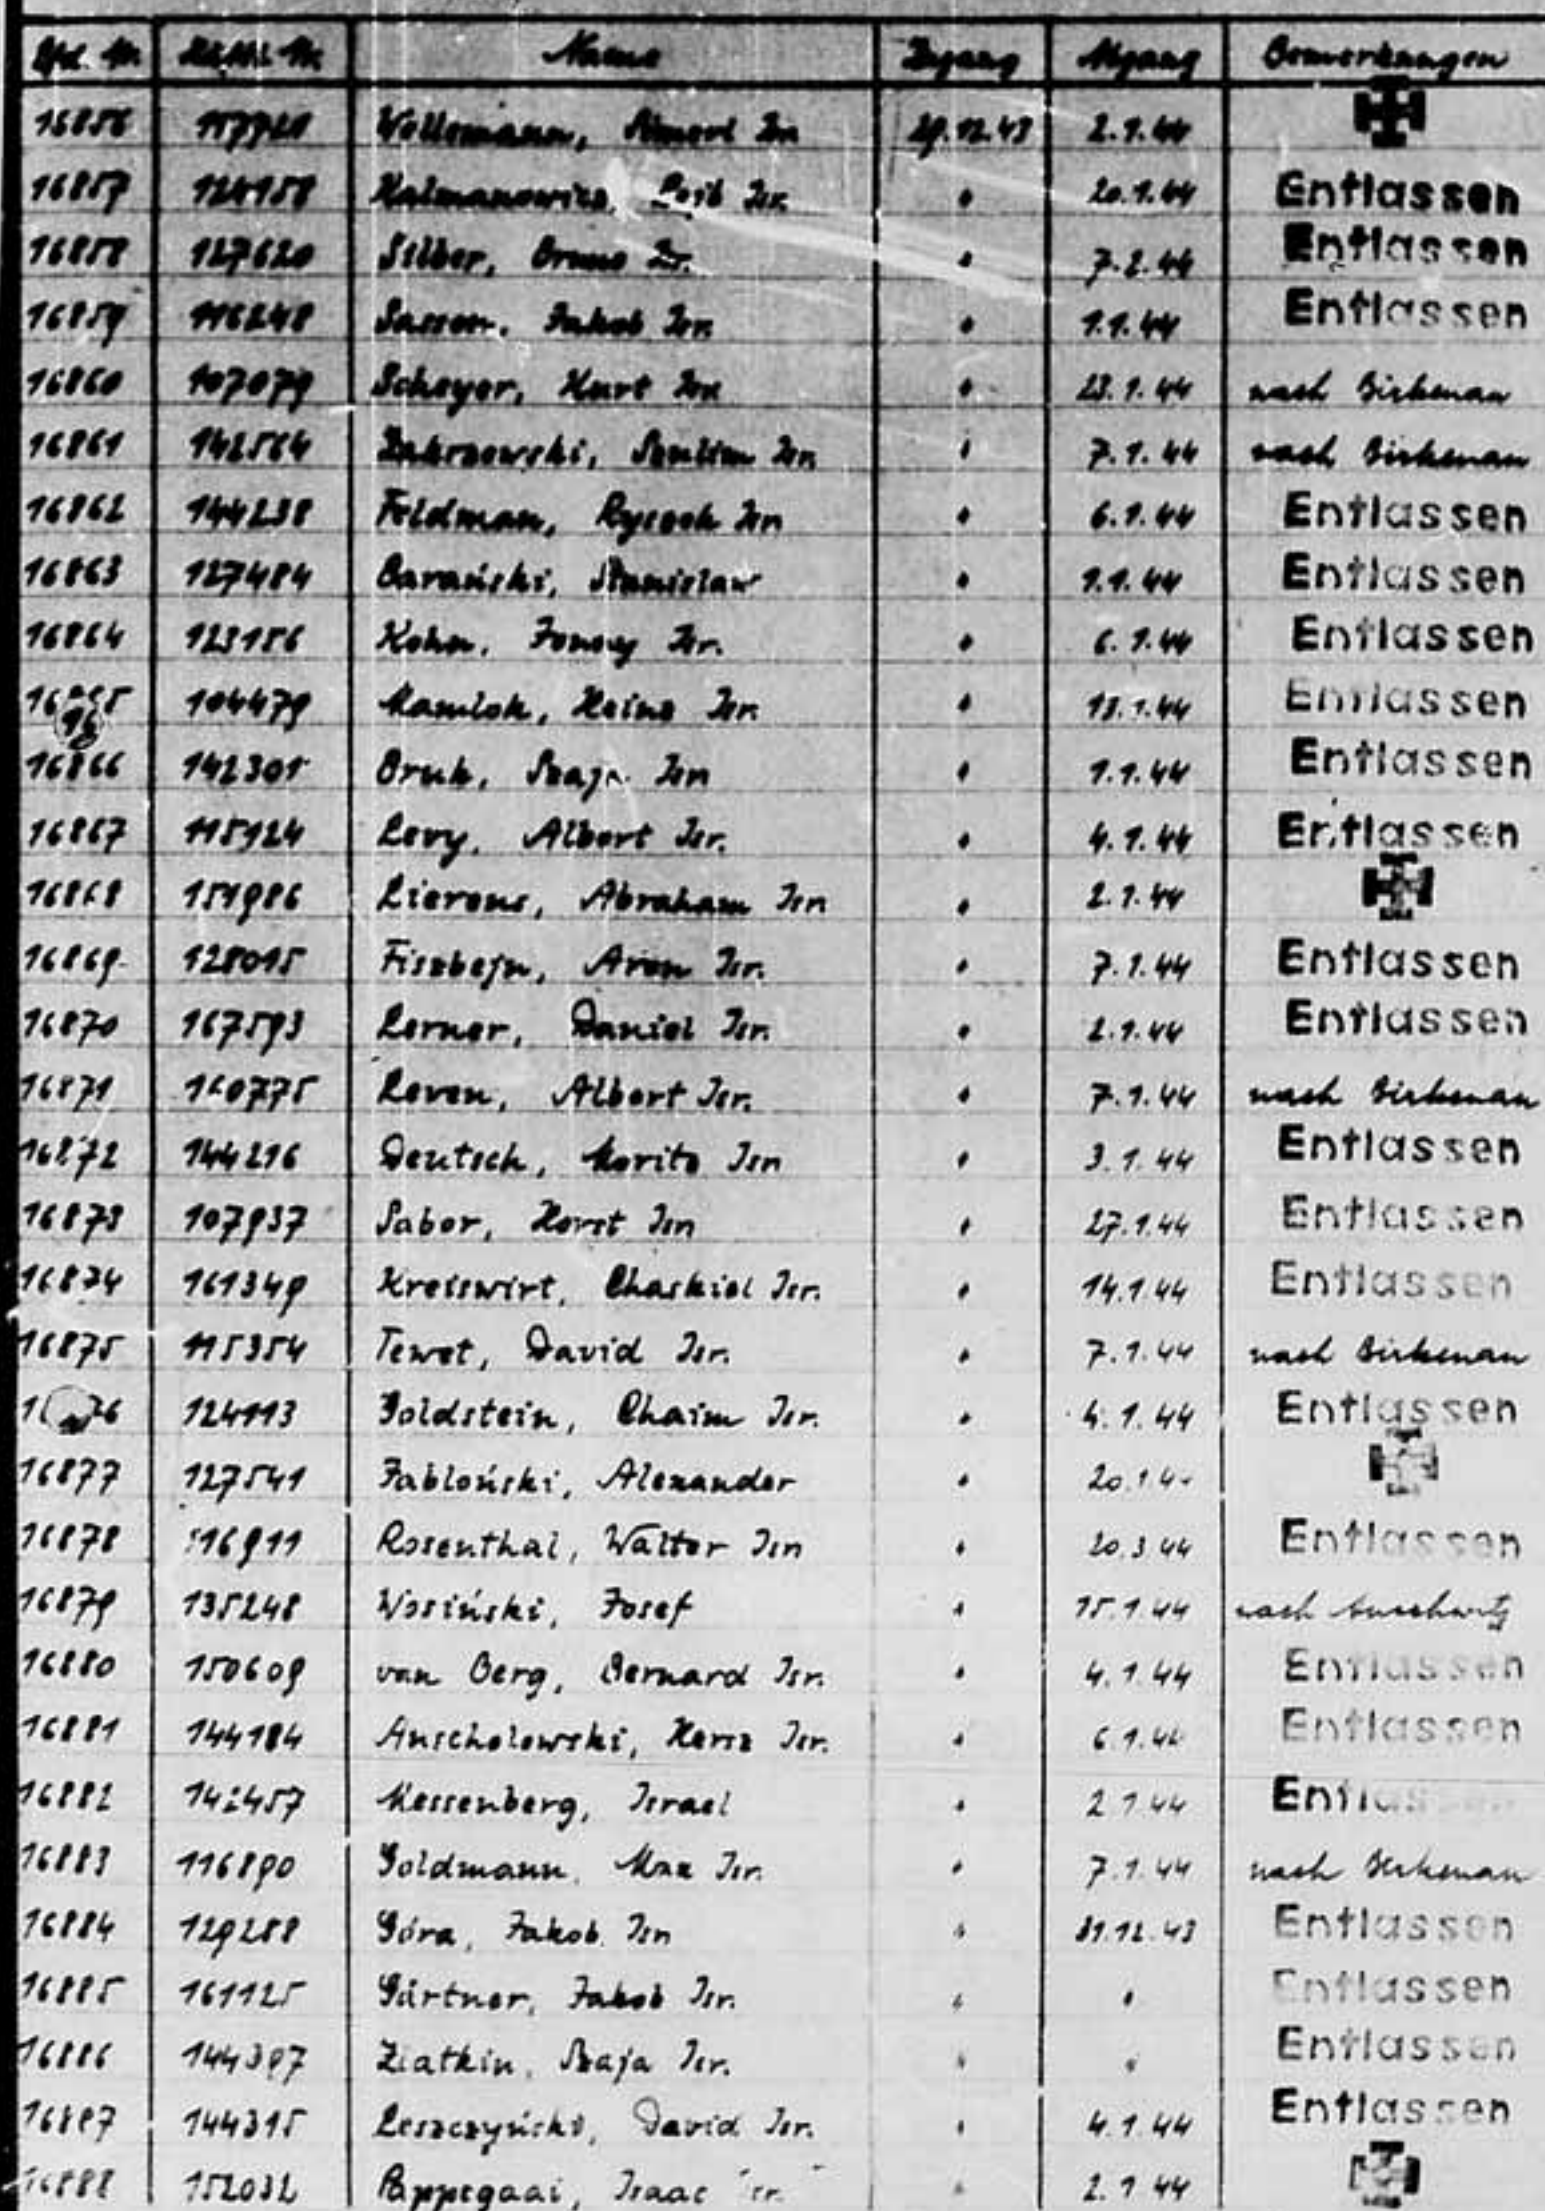 Lfd. Nr. Häftl. Nr. Name Zugang Abgang Bemerkungen
16856 Wollemann, Isr. 29.12.43 2.1.44
16857 124158 Kalmanowicz, Leib Isr. " 20.1.44 Entlassen
16858 127620 Silber, Bruno Isr. " 7.2.44 Entlassen
16859 116248 Sasson, Jakob Isr. " 1.1.44 Entlassen
16860 107079 Scheyer, Kurt Isr. " 23.1.44 nach Birkenau
16861 142564 Zakrzewski, Isr. " 7.1.44 nach Birkenau
16862 144238 Feldman, Isr. " 6.1.44 Entlassen
16863 127484 Barański, Stanislaw " 1.1.44 Entlassen
16864 123156 Kohn, Isr. " 6.1.44 Entlassen
104479 Mamlok, Heinz Isr. " 18.1.44 Entlassen
16866 142301 Bruk, Szaja Isr. " 1.1.44 Entlassen
16867 115924 Levy, Albert Isr. " 4.1.44 Entlassen
16868 151986 Lierens, Abraham Isr. " 2.1.44
16869 128015 Fiszbejn, Aron Isr. " 7.1.44 Entlassen
16870 167593 Lerner, Daniel Isr. " 2.1.44 Entlassen
16871 160775 Leven, Albert Isr. " 7.1.44 nach Birkenau
16872 144216 Deutsch, Moritz Isr. " 3.1.44 Entlassen
16873 107937 Sabor, Horst Isr. " 27.1.44 Entlassen
16874 161349 Kreiswirt, Chaskiel Isr. " 14.1.44 Entlassen
16875 115354 Tewet, David Isr. " 7.1.44 nach Birkenau
124113 Goldstein, Chaim Isr. " 4.1.44 Entlassen
16877 127541 Jabloński, Alexander " 20.1.4
16878 116911 Rosenthal, Walter Isr. " 20.3.44 Entlassen
16879 135248 Wosiński, Josef " 15.1.44 nach Auschwitz
16880 150609 van Berg, Bernard Isr. " 4.1.44 Entlassen
16881 144184 Anscholowski, Hersz Isr. " 6.1.44 Entlassen
16882 142457 Messenberg, Israel " 2.1.44 Entlassen
16883 116890 Goldmann, Max Isr. " 7.1.44 nach Birkenau
16884 129288 Góra, Jakob Isr. " 31.12.43 Entlassen
16885 161125 Gärtner, Jakob Isr. " " Entlassen
16886 144397 Zlatkin, Szaja Isr. " " Entlassen
16887 144315 Leszczyński, David Isr. " 4.1.44 Entlassen
16888 152032 Pappegaai, Isaac Isr. " 2.1.44